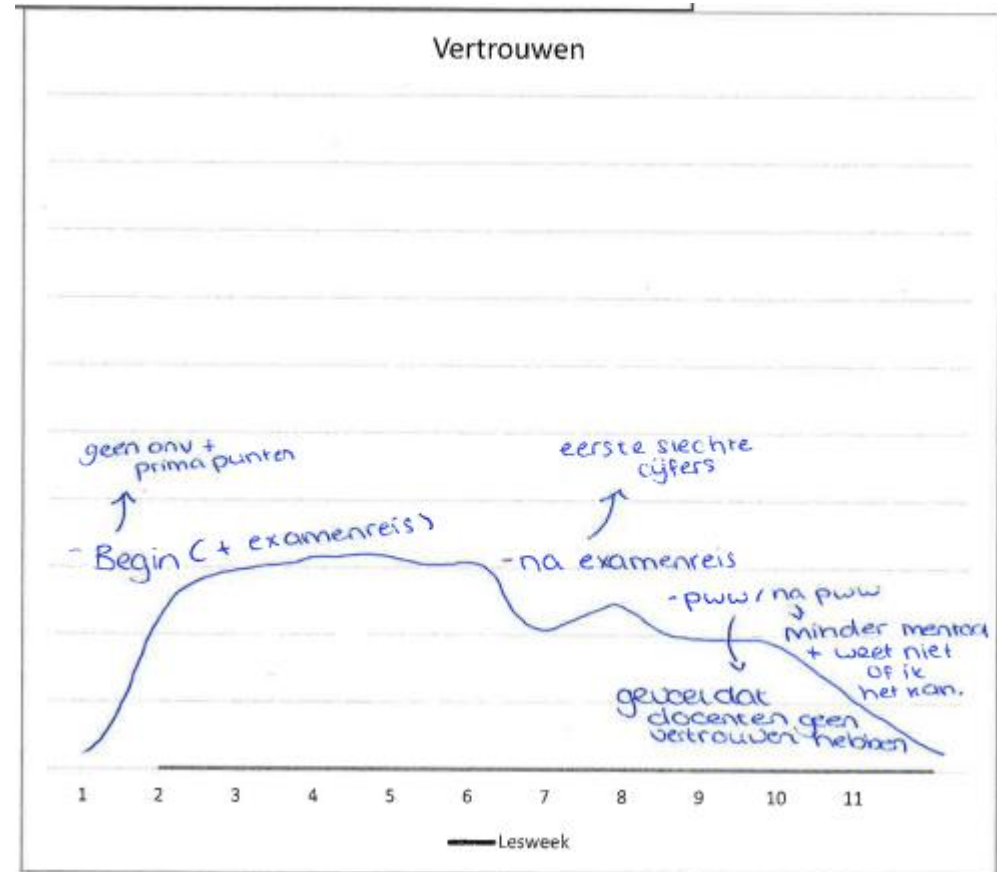 Vertrouwen
geen onv +
prima punten
eerste slechte
cijfers
- Begin (+ examenreis)
- na examenreis
- pww / na pww
minder mentaal
+ weet niet
of ik
het kan.
gevoel dat
docenten geen
vertrouwen hebben
1 2 3 4 5 6 7 8 9 10 11
Lesweek